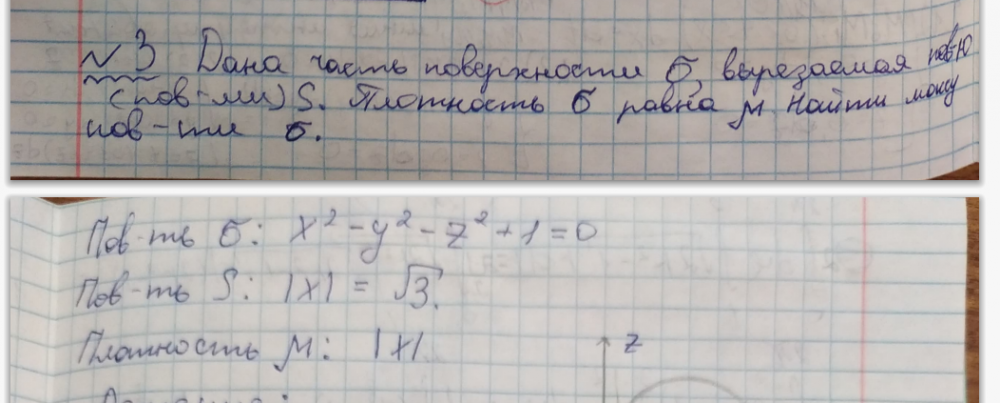 №3 Дана часть поверхности σ, вырезаемая пов-ю
(пов-ми) S. Плотность σ равна μ. Найти массу
пов-ти σ.
Пов-ть σ: x² - y² - z² + 1 = 0
Пов-ть S: |x| = √3.
Плотность μ: |x|
z